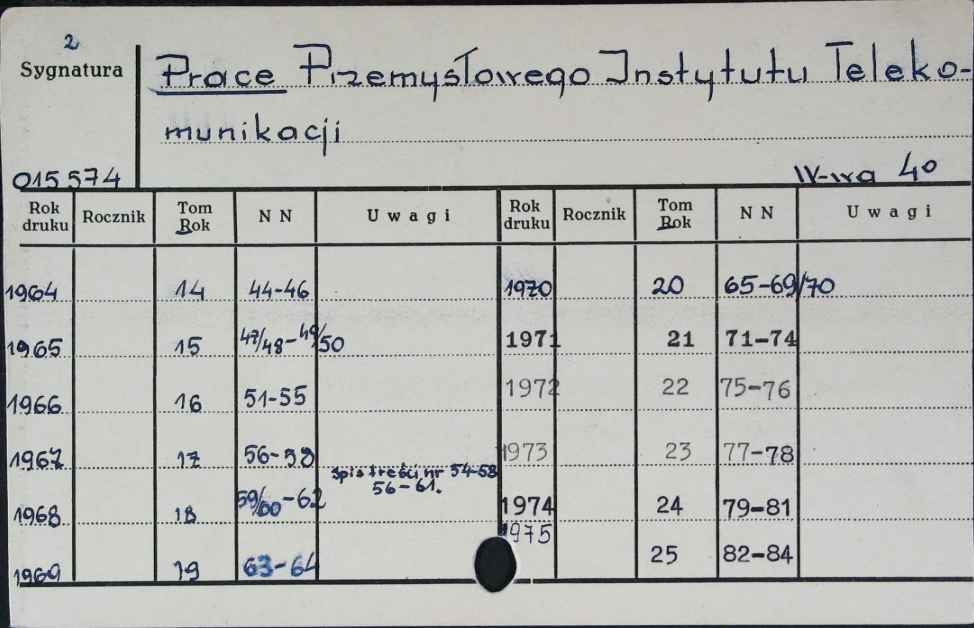 2
Sygnatura
Prace Przemysłowego Instytutu Teleko-
munikacji
015574
W-wa 40
Rok druku Rocznik Tom Rok NN Uwagi Rok druku Rocznik Tom Rok NN Uwagi
1964 14 44-46 1970 20 65-69/70
1965 15 47/48-49/50 1971 21 71-74
1966 16 51-55 1972 22 75-76
1967 17 56-58 1973 23 77-78
spis treści nr 54-58
56-61.
1968 18 59/60-62 1974 24 79-81
1975
1969 19 63-64 25 82-84